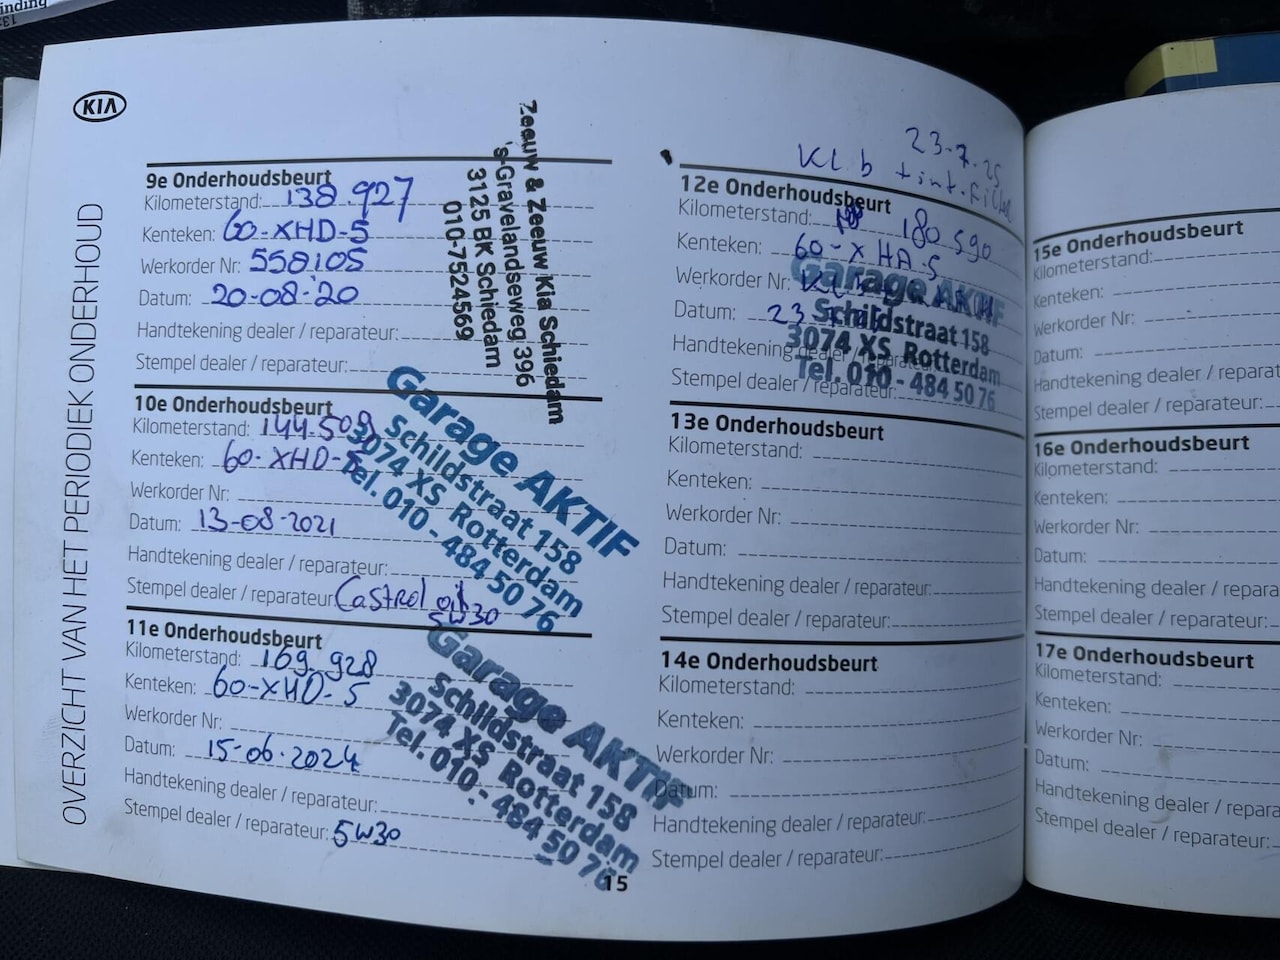 inding
KIA
OVERZICHT VAN HET PERIODIEK ONDERHOUD
9e Onderhoudsbeurt
Kilometerstand: 138.927
Kenteken: 60-XHD-5
Werkorder Nr: 558105
Datum: 20-08-'20
Handtekening dealer / reparateur:
Stempel dealer / reparateur:
Zeeuw & Zeeuw Kia Schiedam
's-Gravelandseweg 396
3125 BK Schiedam
010-7524569
10e Onderhoudsbeurt
Kilometerstand: 144.509
Kenteken: 60-XHD-5
Werkorder Nr:
Datum: 13-08-2021
Handtekening dealer / reparateur:
Stempel dealer / reparateur: Castrol oil
5W30
Garage AKTIF
Schildstraat 158
3074 XS Rotterdam
Tel. 010 - 484 50 76
11e Onderhoudsbeurt
Kilometerstand: 169.928
Kenteken: 60-XHD-5
Werkorder Nr:
Datum: 15-06-2024
Handtekening dealer / reparateur:
Stempel dealer / reparateur: 5W30
Garage AKTIF
Schildstraat 158
3074 XS Rotterdam
Tel. 010 - 484 50 76
15
23-7-25
Kl b + int. Filter
12e Onderhoudsbeurt
Kilometerstand: 180 590
Kenteken: 60-XHA-5
Werkorder Nr:
Datum: 23
Handtekening dealer / reparateur:
Stempel dealer / reparateur:
Garage AKTIF
Schildstraat 158
3074 XS Rotterdam
Tel. 010 - 484 50 76
13e Onderhoudsbeurt
Kilometerstand:
Kenteken:
Werkorder Nr:
Datum:
Handtekening dealer / reparateur:
Stempel dealer / reparateur:
14e Onderhoudsbeurt
Kilometerstand:
Kenteken:
Werkorder Nr:
Datum:
Handtekening dealer / reparateur:
Stempel dealer / reparateur:
15e Onderhoudsbeurt
Kilometerstand:
Kenteken:
Werkorder Nr:
Datum:
Handtekening dealer / reparat
Stempel dealer / reparateur:
16e Onderhoudsbeurt
Kilometerstand:
Kenteken:
Werkorder Nr:
Datum:
Handtekening dealer / repara
Stempel dealer / reparateur:
17e Onderhoudsbeurt
Kilometerstand:
Kenteken:
Werkorder Nr:
Datum:
Handtekening dealer / repara
Stempel dealer / reparateur: